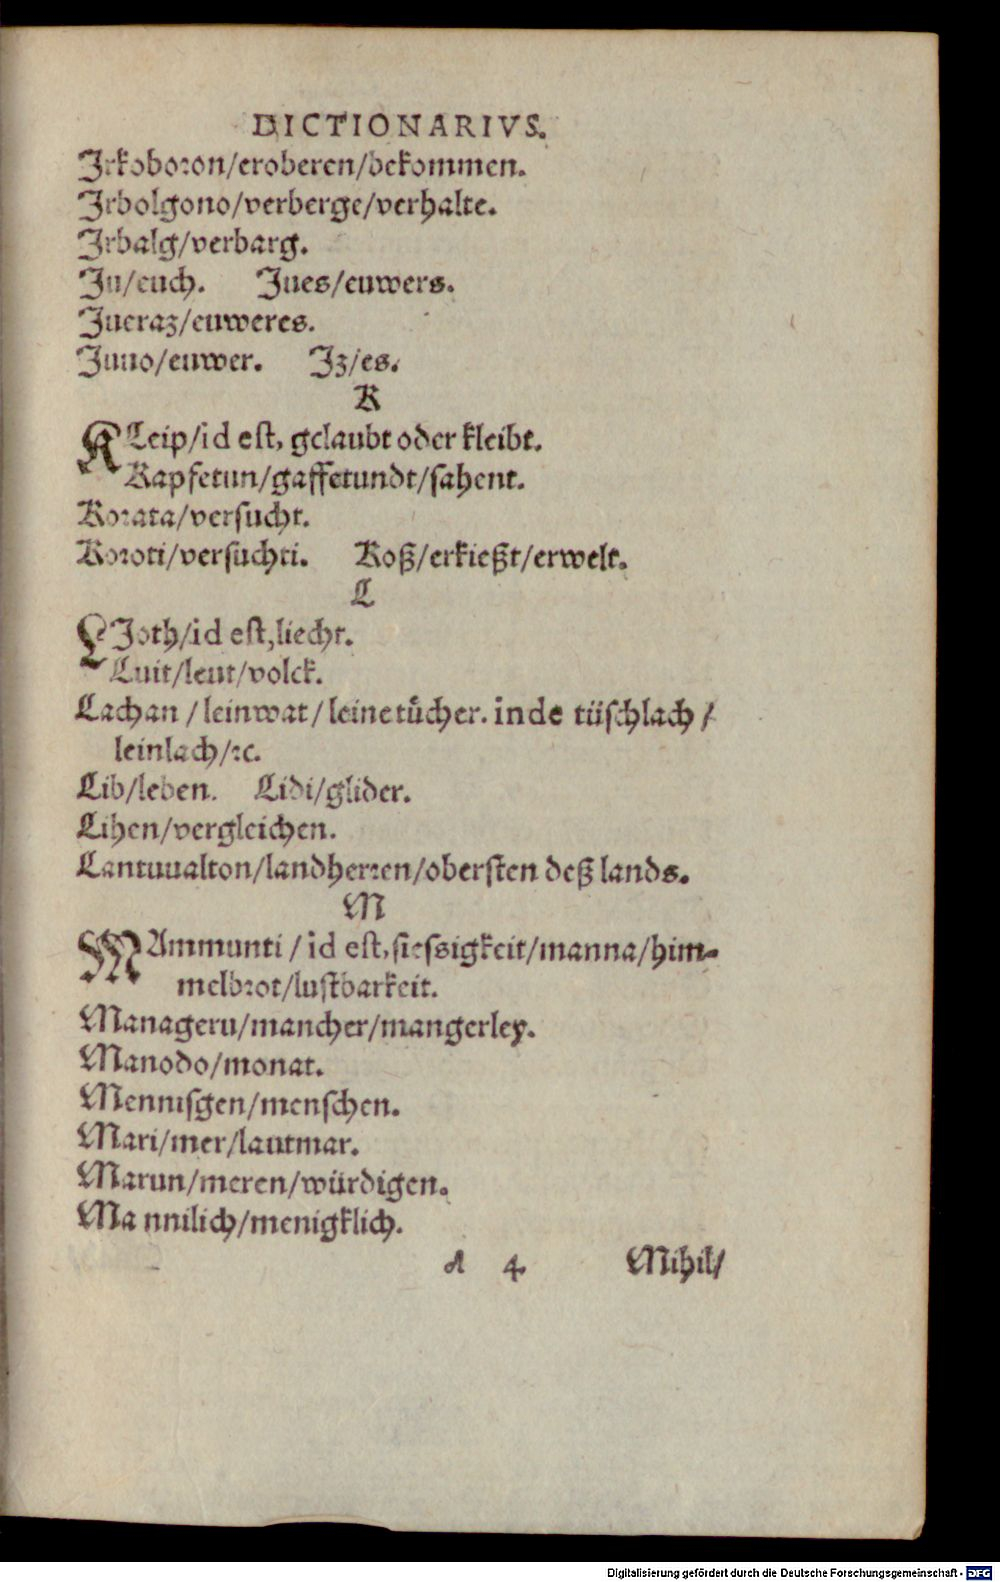 DICTIONARIVS.
Irkoboron/eroberen/bekommen.
Irbolgono/verberge/verhalte.
Irbalg/verbarg.
Iu/euch. Iues/euwers.
Iueraz/euweres.
Iuuo/euwer. Iz/es.
K
KLeip/id est, gelaubt oder kleibt.
Kapfetun/gaffetundt/sahent.
Korata/versucht.
Koroti/versuchti. Koß/erkießt/erwelt.
L
LIoth/id est, liecht.
Luit/leut/volck.
Lachan / leinwat / leinetücher. inde tüschlach /
leinlach/ꝛc.
Lib/leben. Lidi/glider.
Lihen/vergleichen.
Lantuualton/landherren/obersten deß lands.
M
MAmmunti / id est, siessigkeit/manna/him-
melbrot/lustbarkeit.
Manageru/mancher/mangerley.
Manodo/monat.
Mennisgen/menschen.
Mari/mer/lautmar.
Marun/meren/würdigen.
Ma nnilich/menigklich.
A 4 Mihil/
Digitalisierung gefördert durch die Deutsche Forschungsgemeinschaft - DFG